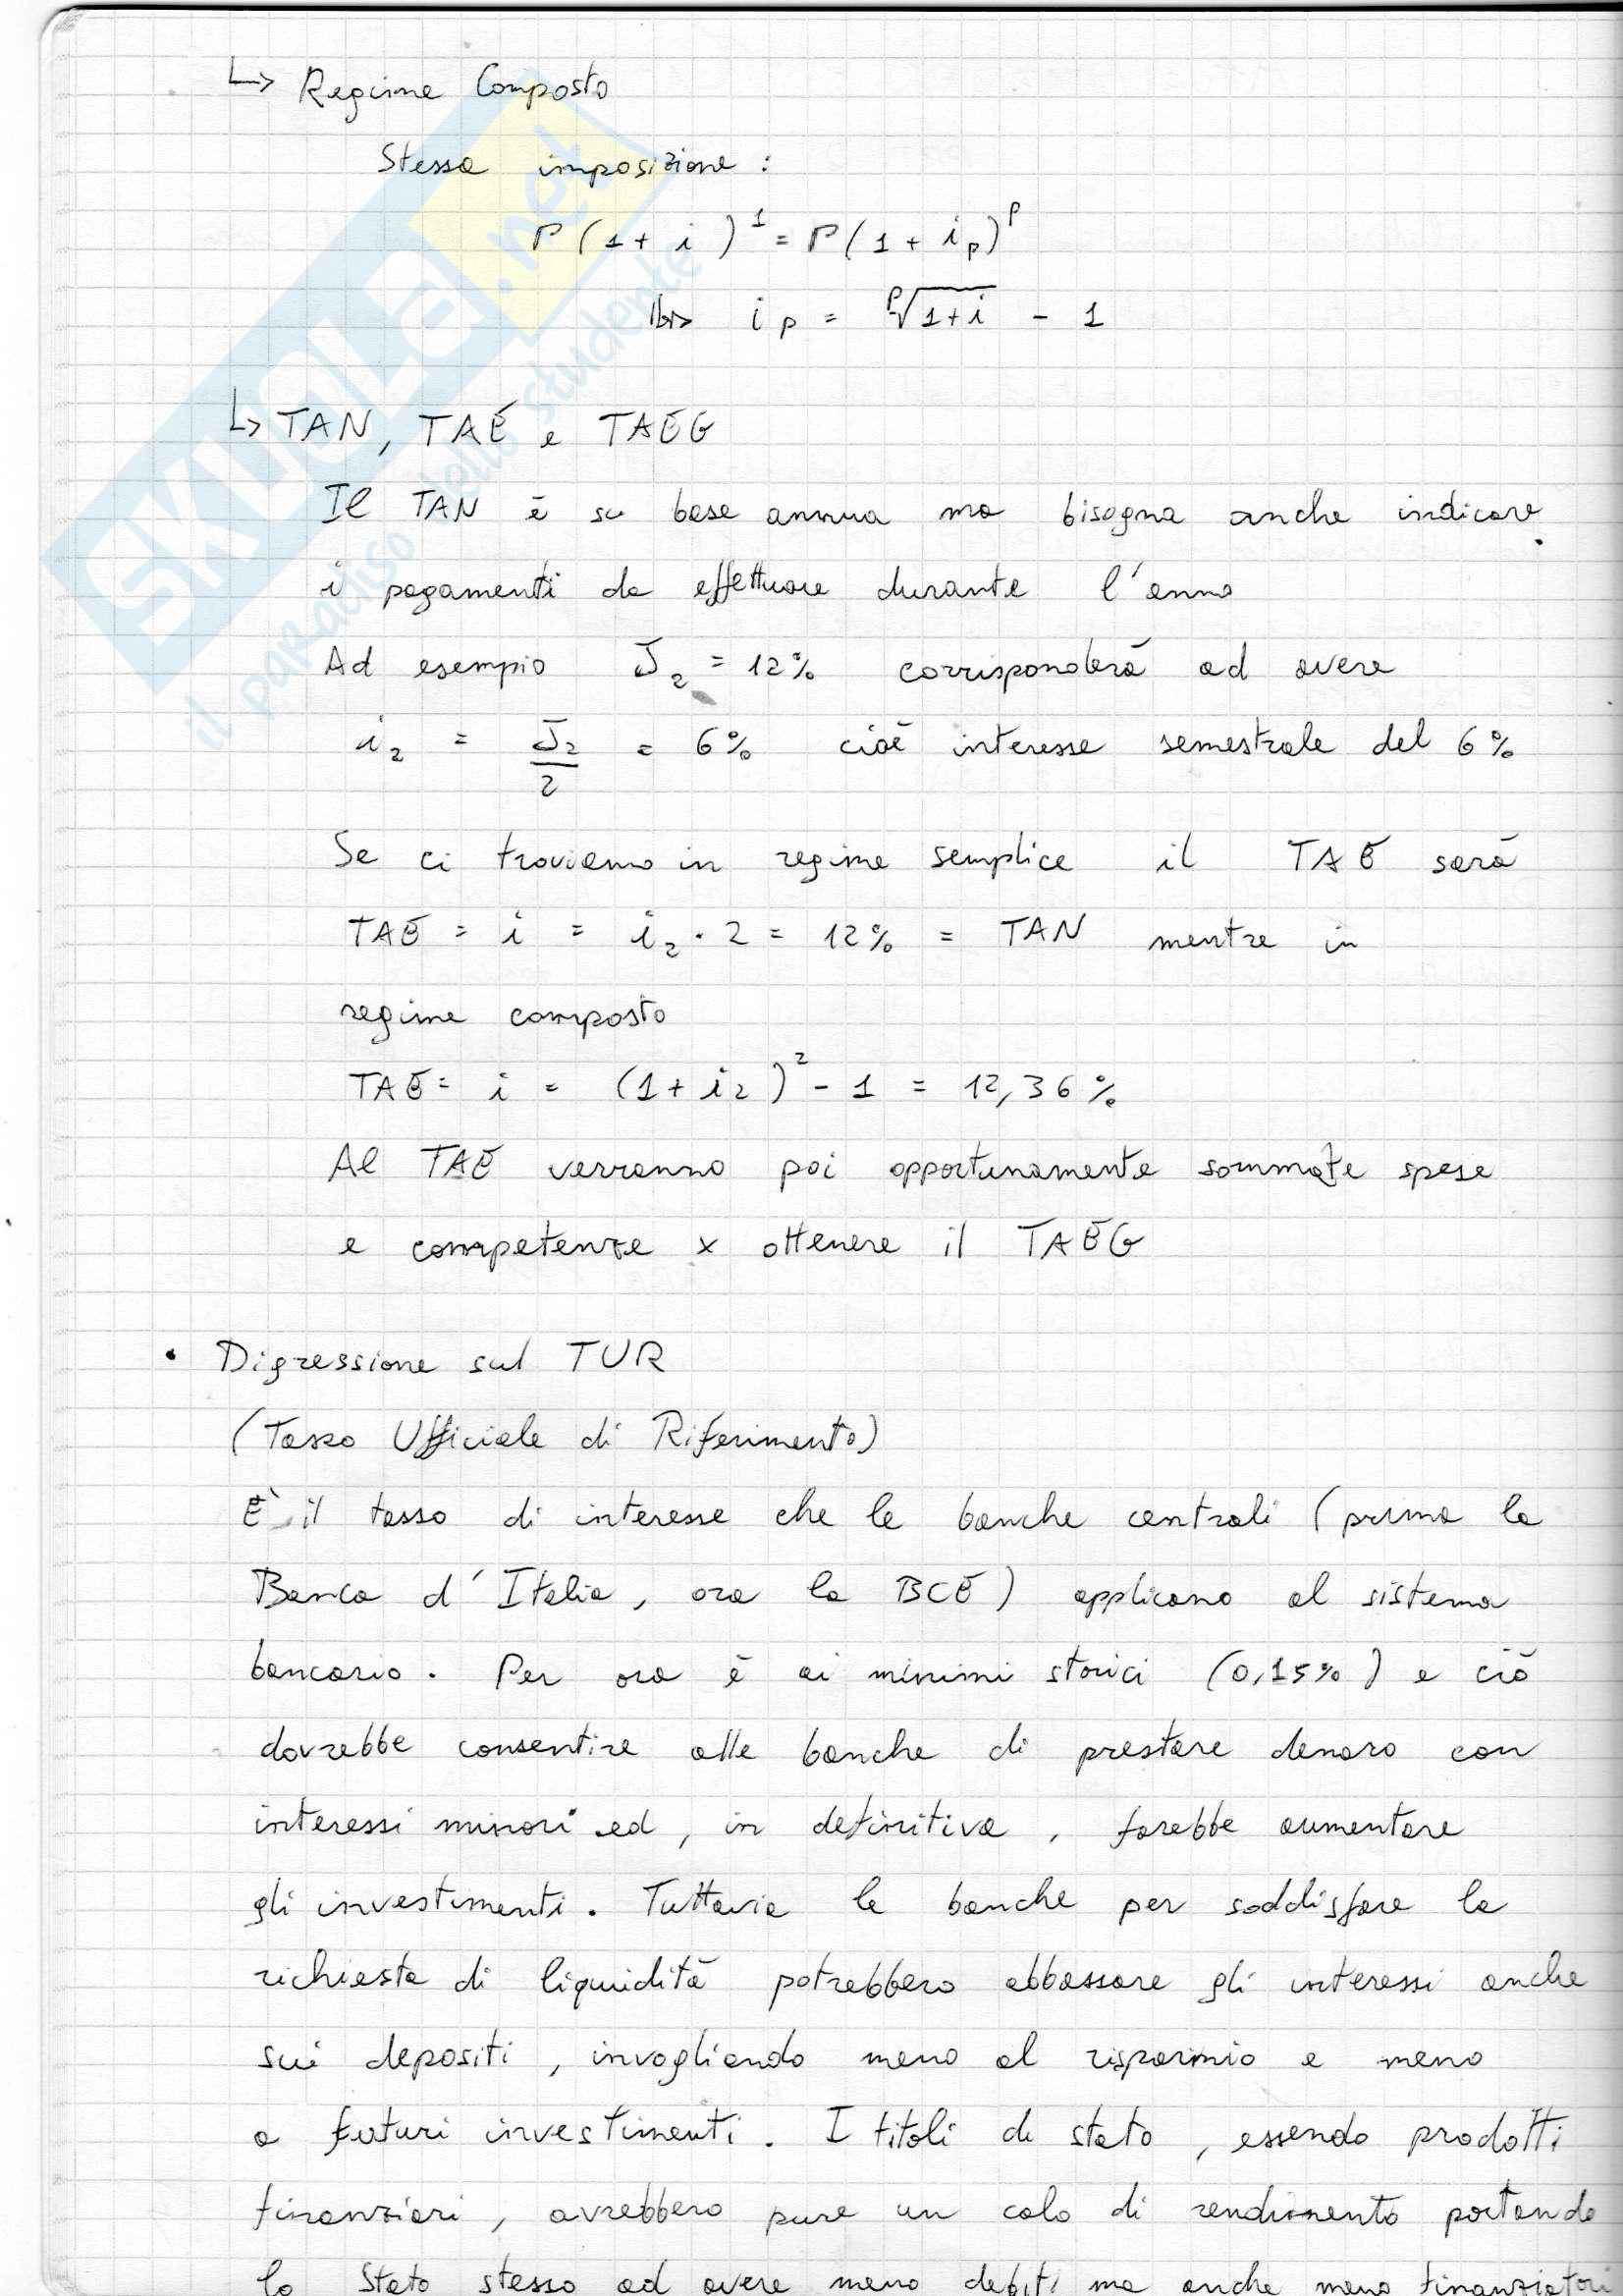 ↳ Regime Composto
Stessa imposizione :
P (1 + i )^1 = P (1 + i_p)^p
i_p = ᵖ√1+i - 1
↳ TAN, TAE e TAEG
Il TAN è su base annua ma bisogna anche indicare
i pagamenti da effettuare durante l'anno
Ad esempio J_2 = 12% corrisponderà ad avere
i_2 = J_2/2 = 6% cioè interesse semestrale del 6%
Se ci troviamo in regime semplice il TAE sarà
TAE = i = i_2 · 2 = 12% = TAN mentre in
regime composto
TAE = i = (1 + i_2)^2 - 1 = 12,36 %
Al TAE verranno poi opportunamente sommate spese
e competenze x ottenere il TAEG
• Digressione sul TUR
(Tasso Ufficiale di Riferimento)
È il tasso di interesse che le banche centrali (prima la
Banca d'Italia, ora la BCE) applicano al sistema
bancario. Per ora è ai minimi storici (0,15%) e ciò
dovrebbe consentire alle banche di prestare denaro con
interessi minori ed, in definitiva, farebbe aumentare
gli investimenti. Tuttavia le banche per soddisfare la
richiesta di liquidità potrebbero abbassare gli interessi anche
sui depositi, invogliando meno al risparmio e meno
a futuri investimenti. I titoli di stato, essendo prodotti
finanziari, avrebbero pure un calo di rendimento portando
lo Stato stesso ad avere meno debiti ma anche meno finanziatori
SKUOLA.net
il paradiso dello studente